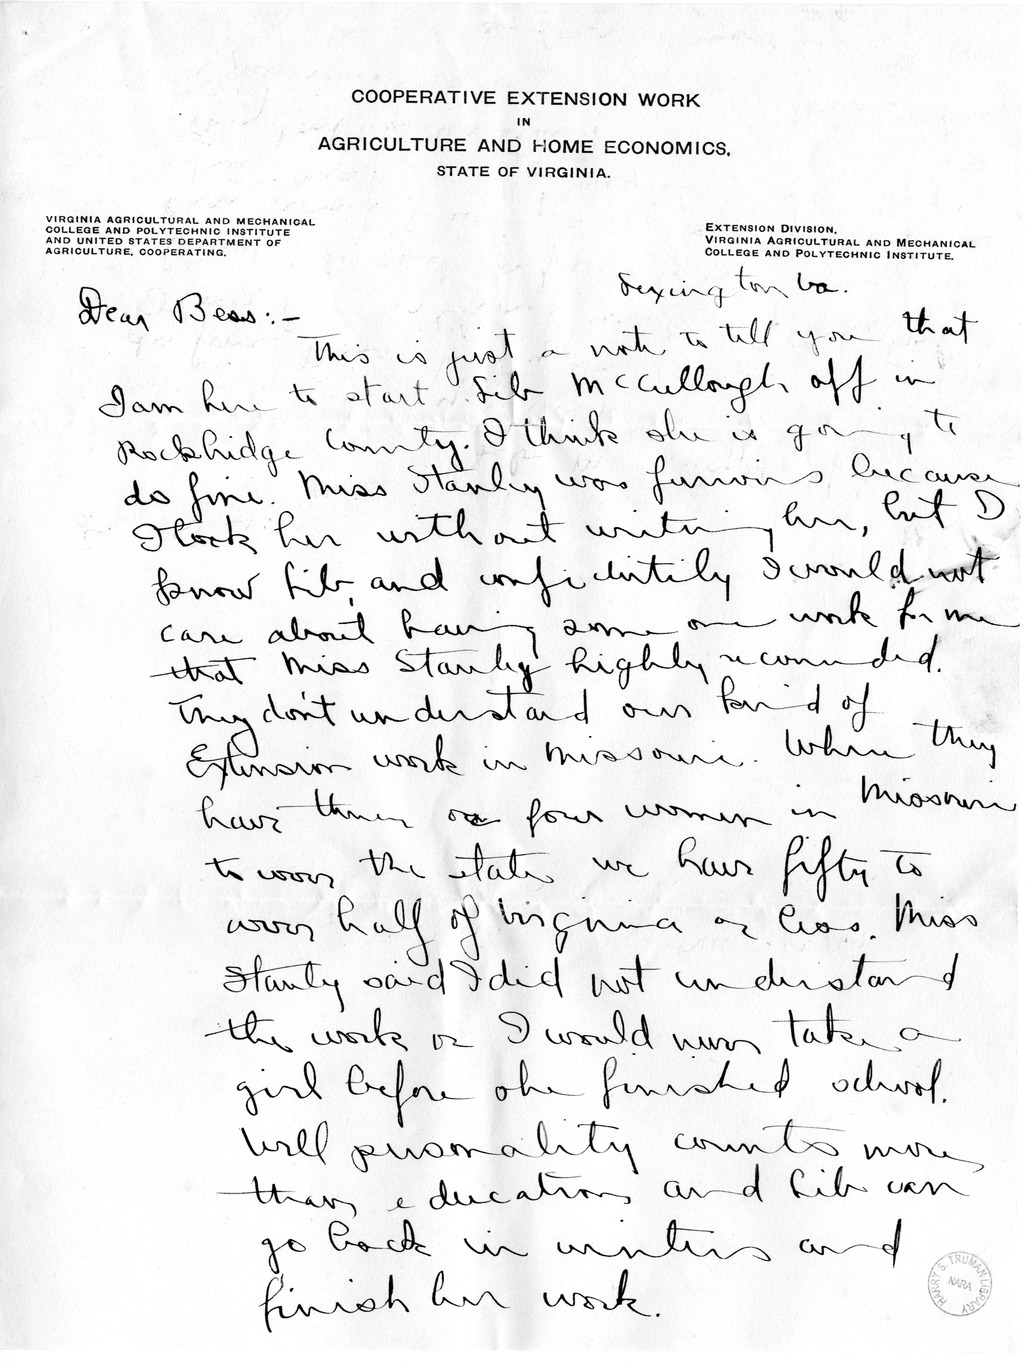 COOPERATIVE EXTENSION WORK
IN
AGRICULTURE AND HOME ECONOMICS.
STATE OF VIRGINIA.
VIRGINIA AGRICULTURAL AND MECHANICAL
COLLEGE AND POLYTECHNIC INSTITUTE
AND UNITED STATES DEPARTMENT OF
AGRICULTURE, COOPERATING.
EXTENSION DIVISION.
VIRGINIA AGRICULTURAL AND MECHANICAL
COLLEGE AND POLYTECHNIC INSTITUTE.
Lexington Va.
Dear Bess:-
This is just a note to tell you that
I am here to start Lib McCullough off in
Rockbridge County. I think she is going to
do fine. Miss Stanley was furious because
I took her without writing her, but I
know Lib, and confidentily I would not
care about having some one work for me
that Miss Stanley highly recommended.
They don't understand our kind of
Extension work in Missouri. Where they
have three or four women in Missouri
to cover the state we have fifty to
cover half of Virginia or less. Miss
Stanly said I did not understand
the work or I would never take a
girl before she finished school.
Well personality counts more
than education and Lib can
go back in winters and
finish her work.
HARRY S. TRUMAN LIBRARY
NARA